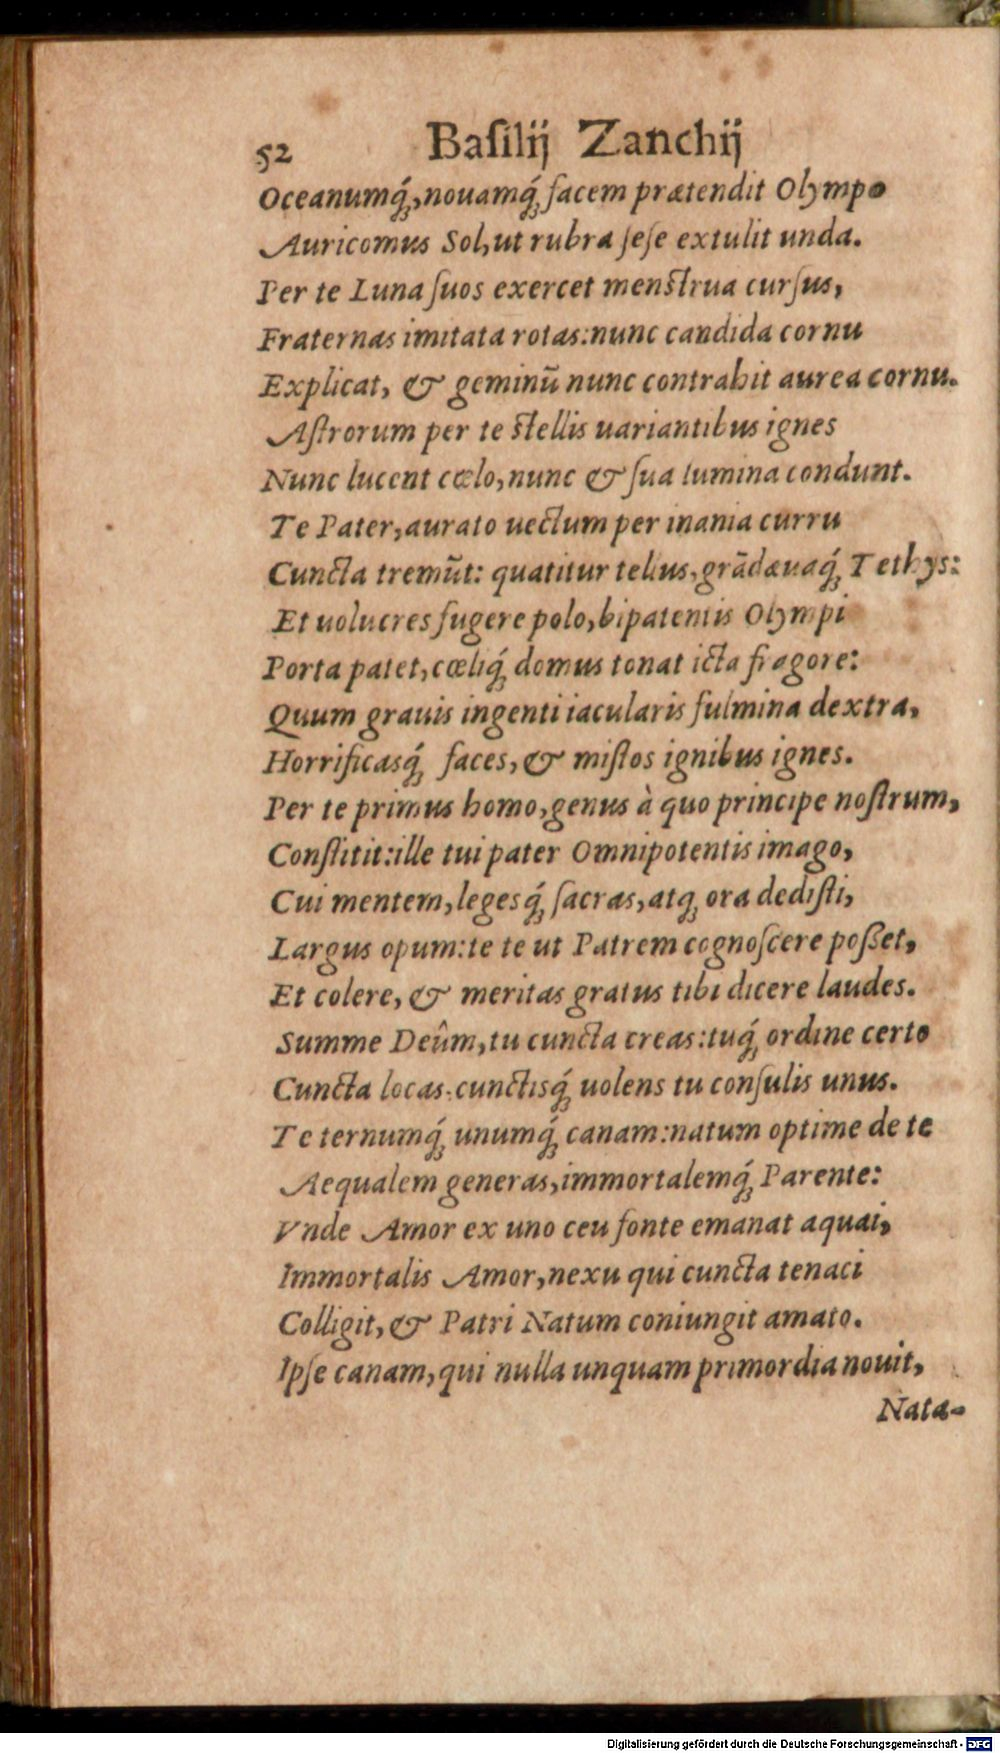 52 Baſilij Zanchij
Oceanumq́;, nouamq́; facem prætendit Olympo
Auricomus Sol, ut rubra ſeſe extulit unda.
Per te Luna ſuos exercet menſtrua curſus,
Fraternas imitata rotas: nunc candida cornu
Explicat, & geminū nunc contrahit aurea cornu.
Aſtrorum per te ſtellis uariantibus ignes
Nunc lucent cœlo, nunc & ſua lumina condunt.
Te Pater, aurato uectum per inania curru
Cuncta tremūt: quatitur tellus, grādæuaq́; Tethys:
Et uolucres fugere polo, bipatentis Olympi
Porta patet, cœliq́; domus tonat icta fragore:
Quum grauis ingenti iacularis fulmina dextra,
Horrificasq́; faces, & miſtos ignibus ignes.
Per te primus homo, genus à quo principe noſtrum,
Conſtitit: ille tui pater Omnipotentis imago,
Cui mentem, legesq́; ſacras, atq; ora dediſti,
Largus opum: te te ut Patrem cognoſcere poſſet,
Et colere, & meritas gratus tibi dicere laudes.
Summe Deûm, tu cuncta creas: tuq́; ordine certo
Cuncta locas: cunctisq́; uolens tu conſulis unus.
Te ternumq́; unumq́; canam: natum optime de te
Aequalem generas, immortalemq́; Parente:
Vnde Amor ex uno ceu fonte emanat aquai,
Immortalis Amor, nexu qui cuncta tenaci
Colligit, & Patri Natum coniungit amato.
Ipſe canam, qui nulla unquam primordia nouit,
Nata-
Digitalisierung gefördert durch die Deutsche Forschungsgemeinschaft - DFG